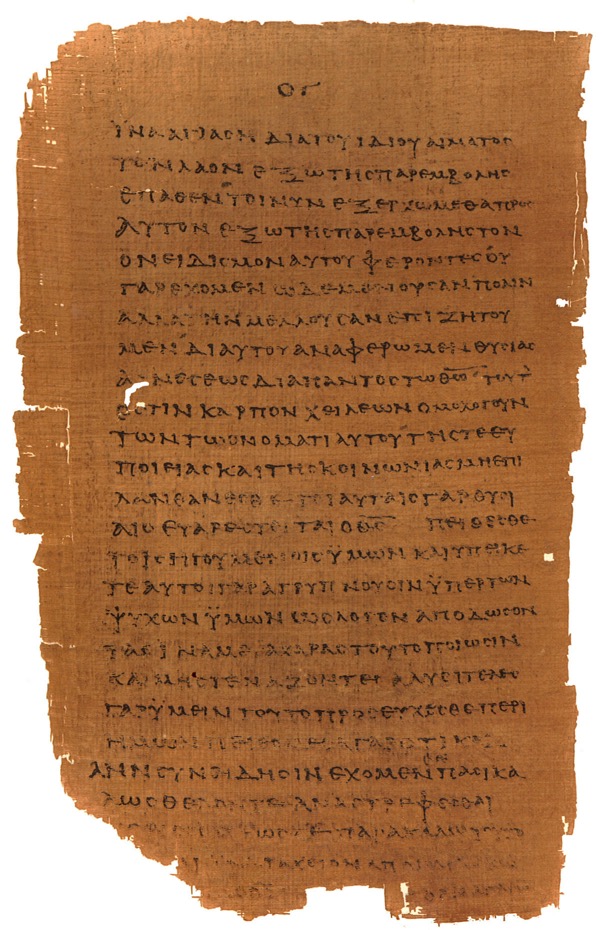 ΟΓ
ΪΝΑΑΓΙΑϹΗ ΔΙΑΤΟΥΙΔΙΟΥΑΙΜΑΤΟϹ
ΤΟΝΛΑΟΝΕΞΩΤΗϹΠΑΡΕΜΒΟΛΗϹ
ΕΠΑΘΕΝΤΟΙΝΥΝΕΞΕΡΧΩΜΕΘΑΠΡΟϹ
ΑΥΤΟΝΕΞΩΤΗϹΠΑΡΕΜΒΟΛΗϹΤΟΝ
ΟΝΕΙΔΙϹΜΟΝΑΥΤΟΥΦΕΡΟΝΤΕϹΟΥ
ΓΑΡΕΧΟΜΕΝΩΔΕΜΕΝΟΥϹΑΝΠΟΛΙΝ
ΑΛΛΑΤΗΝΜΕΛΛΟΥϹΑΝΕΠΙΖΗΤΟΥ
ΜΕΝΔΙΑΥΤΟΥΑΝΑΦΕΡΩΜΕΝΘΥϹΙΑϹ
ΑΙΝΕϹΕΩϹΔΙΑΠΑΝΤΟϹΤΩΘ̅Ω̅ΤΟΥΤ
ΕϹΤΙΝΚΑΡΠΟΝΧΕΙΛΕΩΝΟΜΟΛΟΓΟΥΝ
ΤΩΝΤΩΟΝΟΜΑΤΙΑΥΤΟΥΤΗϹΤΕΕΥ
ΠΟΙΕΙΑϹΚΑΙΤΗϹΚΟΙΝΩΝΙΑϹΜΗΕΠΙ
ΛΑΝΘΑΝΕϹΘΕΤΟΙΑΥΤΑΙϹΓΑΡΘΥϹΙ
ΑΙϹΕΥΑΡΕϹΤΕΙΤΑΙΟΘ̅Ϲ̅ ΠΕΙΘΕϹΘΕ
ΤΟΙϹΗΓΟΥΜΕΝΟΙϹΫΜΩΝΚΑΙΥΠΕΙΚΕ
ΤΕΑΥΤΟΙΓΑΡΑΓΡΥΠΝΟΥϹΙΝΫΠΕΡΤΩΝ
ΨΥΧΩΝΫΜΩΝΩϹΛΟΓΟΝΑΠΟΔΩϹΟΝ
ΤΑϹΙΝΑΜΕΤΑΧΑΡΑϹΤΟΥΤΟΠΟΙΩϹΙΝ
ΚΑΙΜΗϹΤΕΝΑΖΟΝΤΕϹΑΛΥϹΙΤΕΛΕϹ
ΓΑΡΥΜΕΙΝΤΟΥΤΟΠΡΟϹΕΥΧΕϹΘΕΠΕΡΙ
ΗΜΩΝΠΕΙΘΟΜΕΘΑΓΑΡΟΤΙΚΑ
ΛΗΝϹΥΝΕΙΔΗϹΙΝΕΧΟΜΕΝΕΝΠΑϹΙΚΑ
ΛΩϹΘΕΛΟΝΤΕϹΑΝΑϹΤΡΕΦΕϹΘΑΙ